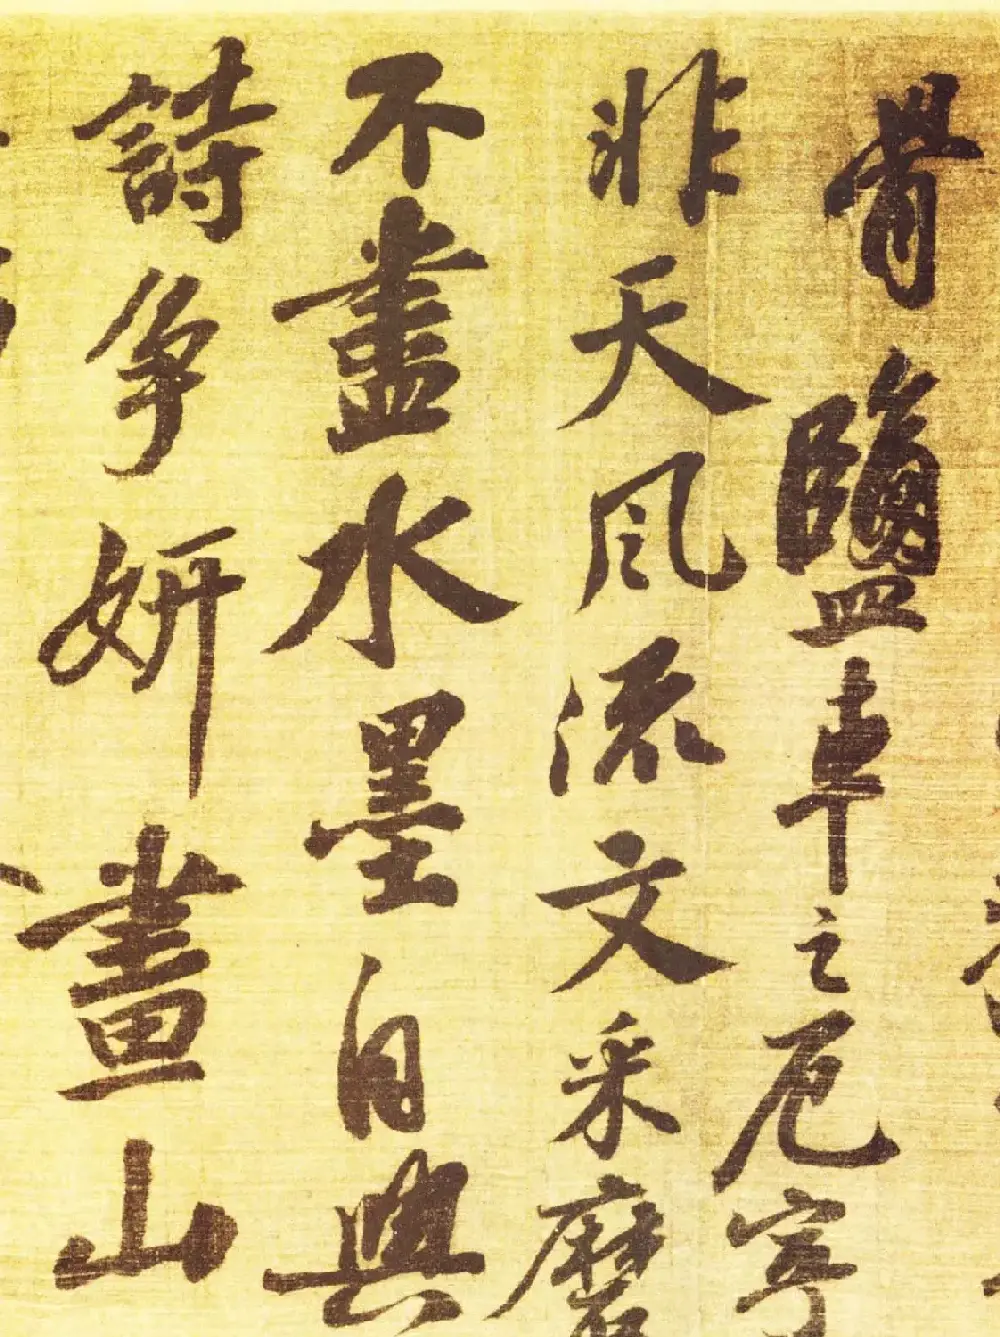 骨鹽車之厄寧
非天風流文采磨
不盡水墨自與
詩爭妍畫山